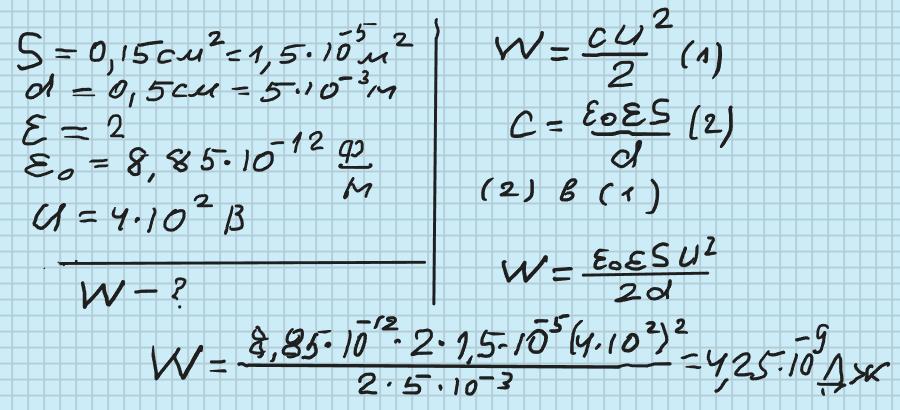 S = 0,15см² = 1,5·10⁻⁵м²
d = 0,5см = 5·10⁻³м
ε = 2
ε₀ = 8,85·10⁻¹² Ф/м
U = 4·10² В
W – ?
W = CU²/2 (1)
C = ε₀εS/d (2)
(2) в (1)
W = ε₀εSU²/2d
W = 8,85·10⁻¹²·2·1,5·10⁻⁵(4·10²)²/2·5·10⁻³ = 4,25·10⁻⁹Дж